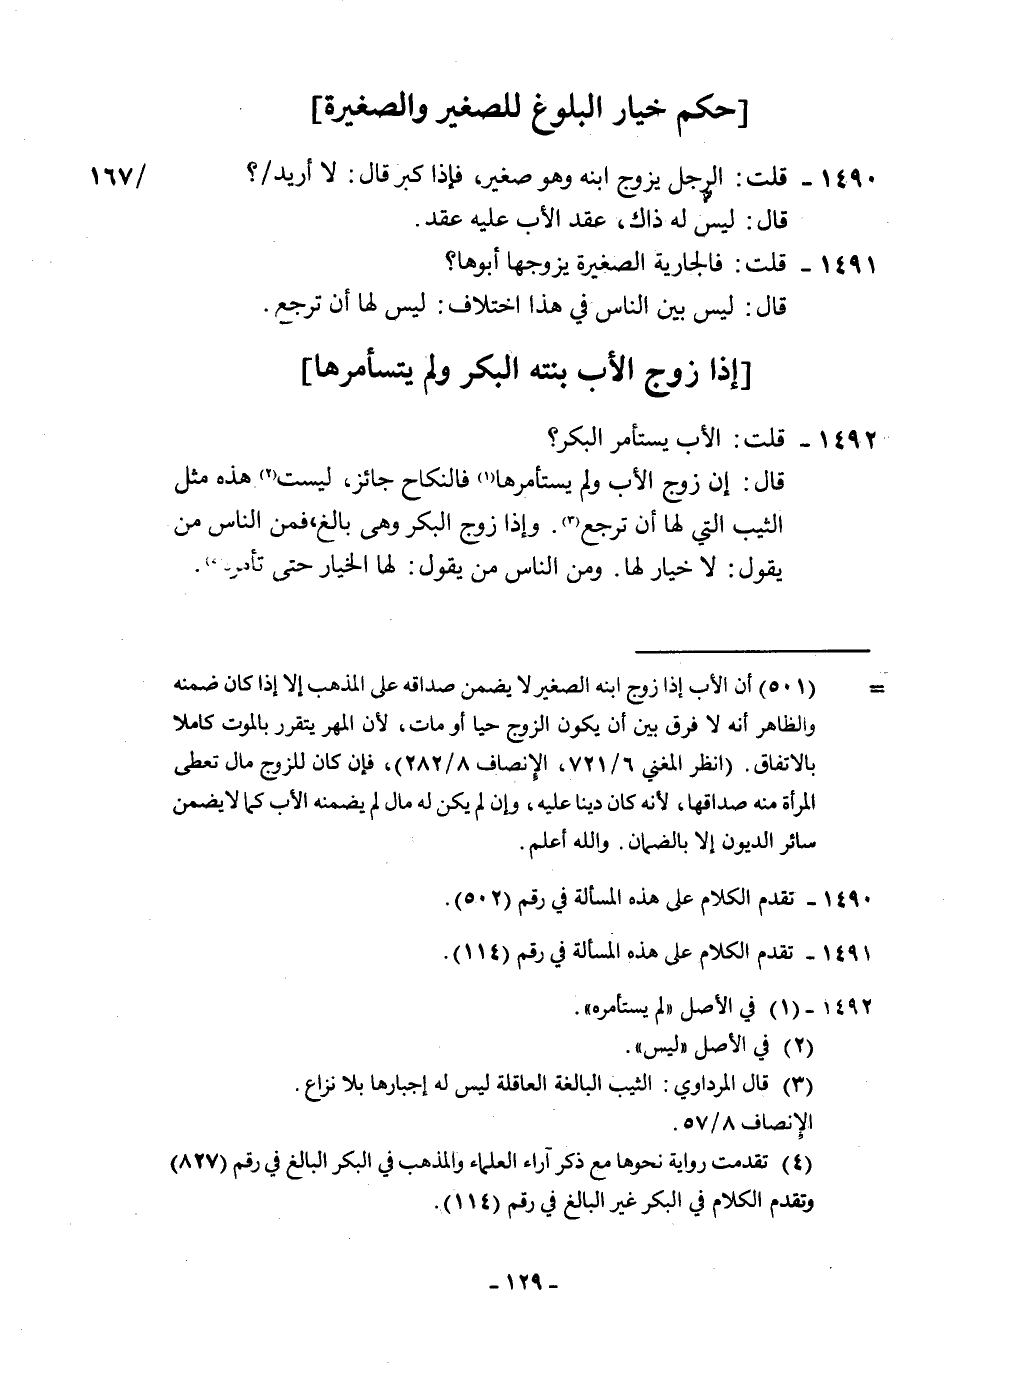 [حكم خيار البلوغ للصغير والصغيرة]
١٤٩٠ - قلت: الرجل يزوج ابنه وهو صغير، فإذا كبر قال: لا أريد/؟ /١٦٧
قال: ليس له ذاك، عقد الأب عليه عقد.
١٤٩١ - قلت: فالجارية الصغيرة يزوجها أبوها؟
قال: ليس بين الناس في هذا اختلاف: ليس لها أن ترجع.
[إذا زوج الأب بنته البكر ولم يتسأمرها]
١٤٩٢ - قلت: الأب يستأمر البكر؟
قال: إن زوج الأب ولم يستأمرها(١) فالنكاح جائز، ليست(٢) هذه مثل
الثيب التي لها أن ترجع(٣). وإذا زوج البكر وهى بالغ،فمن الناس من
يقول: لا خيار لها. ومن الناس من يقول: لها الخيار حتى
= (٥٠١) أن الأب إذا زوج ابنه الصغير لا يضمن صداقه على المذهب إلا إذا كان ضمنه
والظاهر أنه لا فرق بين أن يكون الزوج حيا أو مات، لأن المهر يتقرر بالموت كاملا
بالاتفاق. (انظر المغني ٧٢١/٦، الإنصاف ٢٨٢/٨)، فإن كان للزوج مال تعطى
المرأة منه صداقها، لأنه كان دينا عليه، وإن لم يكن له مال لم يضمنه الأب كما لا يضمن
سائر الديون إلا بالضمان. والله أعلم.
١٤٩٠ - تقدم الكلام على هذه المسألة في رقم (٥٠٢).
١٤٩١ - تقدم الكلام على هذه المسألة في رقم (١١٤).
١٤٩٢ - (١) في الأصل «لم يستأمره».
(٢) في الأصل «ليس».
(٣) قال المرداوي: الثيب البالغة العاقلة ليس له إجبارها بلا نزاع.
الإنصاف ٥٧/٨.
(٤) تقدمت رواية نحوها مع ذكر آراء العلماء والمذهب في البكر البالغ في رقم (٨٢٧)
وتقدم الكلام في البكر غير البالغ في رقم (١١٤).
- ١٢٩ -